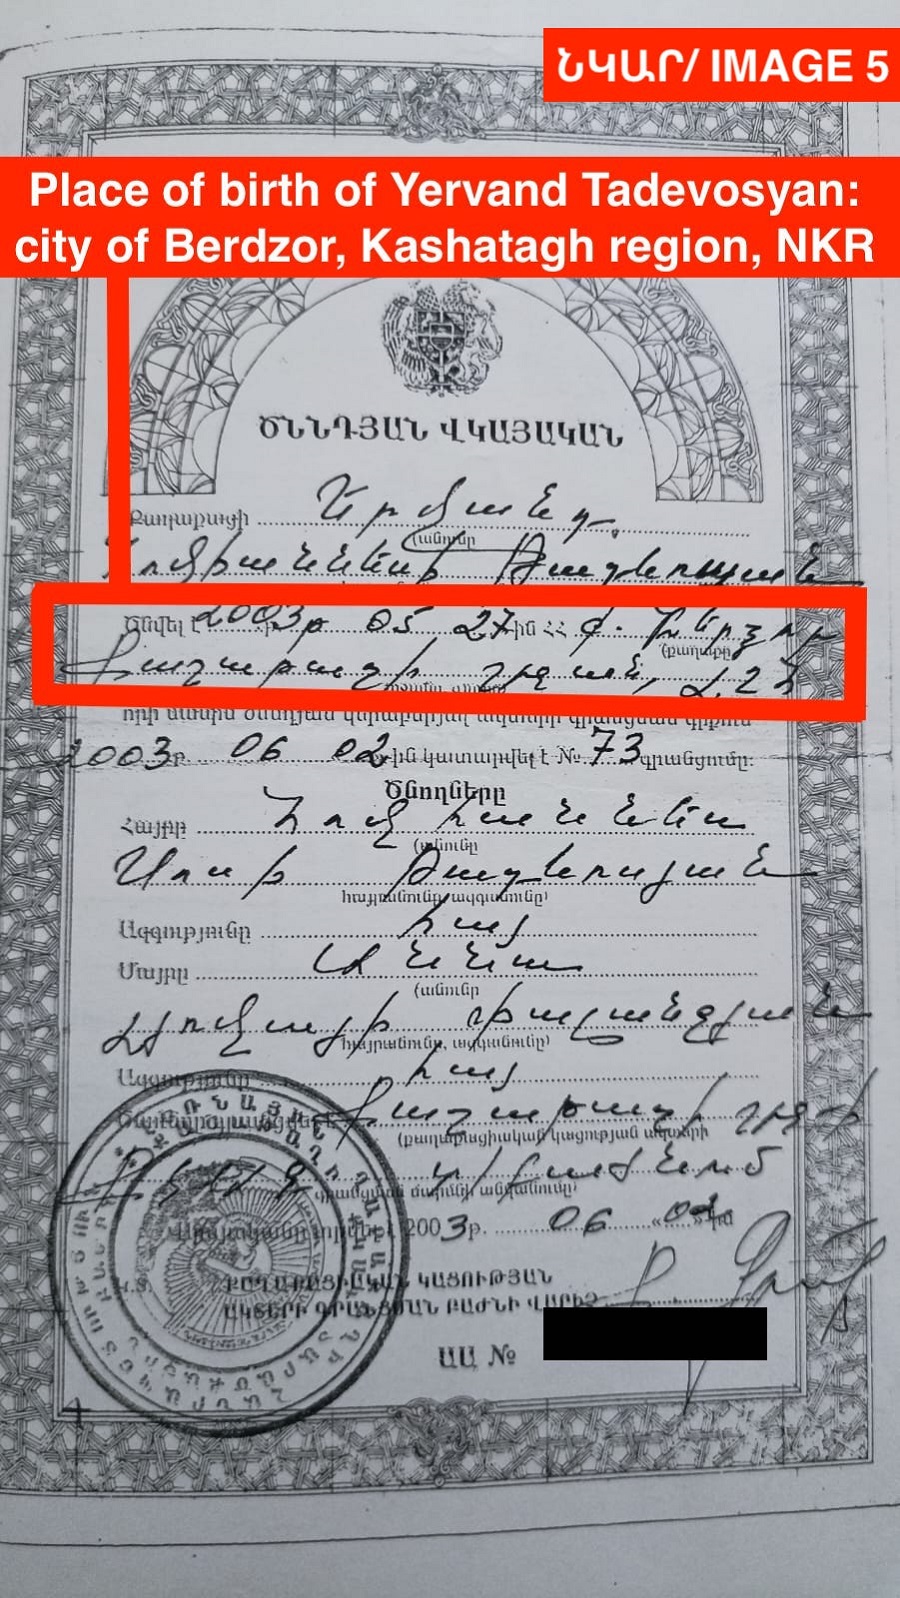 ՆԿԱՐ/ IMAGE 5
Place of birth of Yervand Tadevosyan:
city of Berdzor, Kashatagh region, NKR
ԾՆՆԴՅԱՆ ՎԿԱՅԱԿԱՆ
Քաղաքացի Երվանդ
(անունը
Հովհաննեսի Թադևոսյան
Ծնվել է 2003թ 05 27 ին ՀՀ ք.
(քաղաքը
Քաշաթաղի շրջան, ԼՂՀ
որի մասին ծննդյան գրանցման գրքում
2003թ. 06 02 ին կատարվել է № 73 գրանցումը:
Ծնողները
Հայրը Հովհաննես
(անունը
Սոսի Թադևոսյան
հայրանունը, ազգանունը)
Ազգությունը հայ
Մայրը Աննա
(անունը
հայրանունը, ազգանունը)
Ազգությունը հայ
Քաշաթաղի շրջ-ի
(քաղաքացիական կացության ակտերի
ՔԿԱԳ տ/բաժնում
գրանցման մարմնի անվանումը)
2003թ. 06 «02» ին
ՔԱՂԱՔԱՑԻԱԿԱՆ ԿԱՑՈՒԹՅԱՆ
ԱԿՏԵՐԻ ԳՐԱՆՑՄԱՆ ԲԱԺՆԻ ՎԱՐԻՉ
ԱԱ №